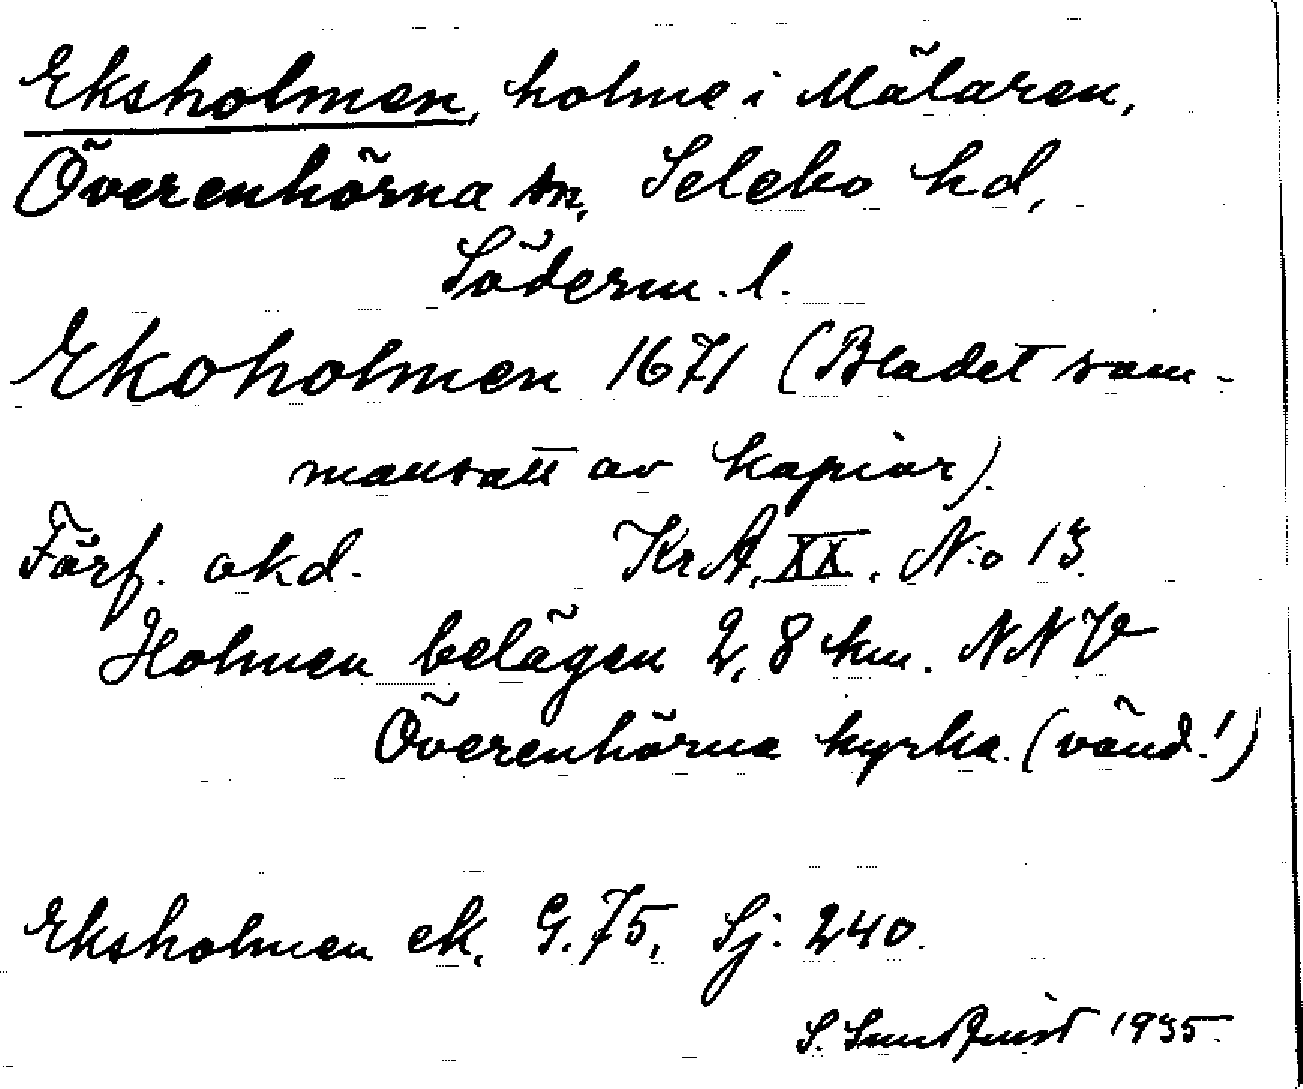 Eksholmen, holme i Mälaren,
Överenhörna sn, Selebo hd,
Söderm. l.
Ekoholmen 1671 (Bladet sam-
mansatt av kopior).
Förf. okd. KrA, XX, N:o 13.
Holmen belägen 2,8 km. NNV
Överenhörna kyrka. (vänd!)
Eksholmen ek. G. 75, Sj. 240.
S. Sundquist 1935.